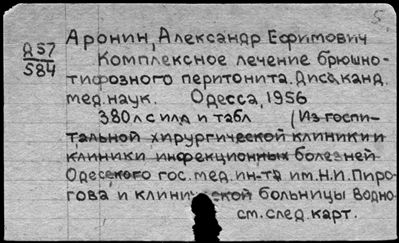 5.
Д57
584
Аронин, Александр Ефимович
Комплексное лечение брюшно-
тифозного перитонита. Дисс. канд.
мед. наук. Одесса, 1956
380л с илл и табл (Из госпи-
тальной хирургической клиники и
клиники инфекционных болезней
Одесского гос. мед. ин-та им. Н.И. Пиро-
гова и клинической больницы Водно-
см. след. карт.